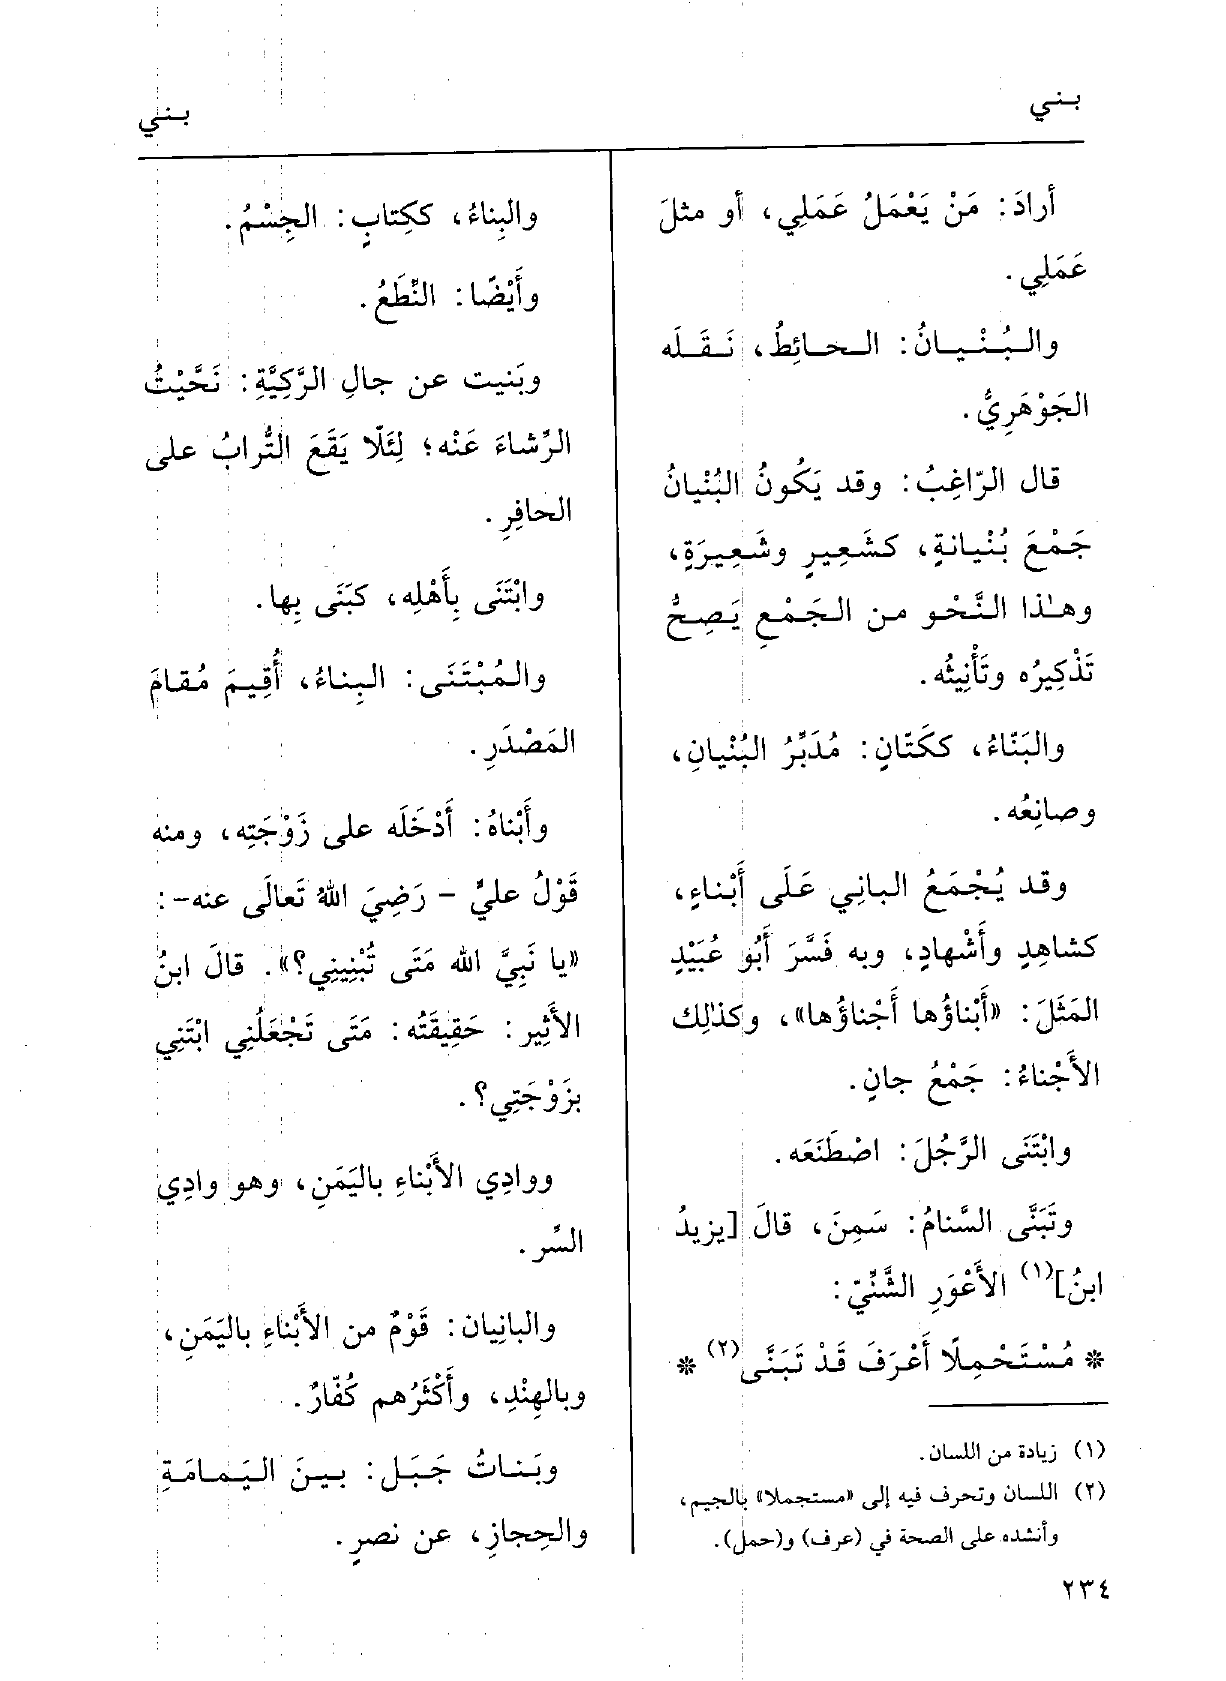 بني
بني
أرادَ: مَنْ يَعْمَلُ عَمَلِي، أو مثلَ
عَمَلِي.
والبُنْيانُ: الحائِطُ، نَقَلَه
الجَوْهَرِيُّ.
قال الرّاغِبُ: وقد يَكُونُ البُنْيانُ
جَمْعَ بُنْيانةٍ، كشَعِيرٍ وشَعِيرَةٍ،
وهٰذا النَّحْو من الجَمْعِ يَصِحُّ
تَذْكِيرُه وتَأْنِيثُه.
والبَنّاءُ، ككَتّانٍ: مُدَبِّرُ البُنْيانِ،
وصانِعُه.
وقد يُجْمَعُ الباني عَلَى أَبْناءٍ،
كشاهِدٍ وأَشْهادٍ، وبه فَسَّرَ أَبُو عُبَيْدٍ
المَثَلَ: «أَبْناؤُها أَجْناؤُها»، وكذٰلِك
الأَجْناءُ: جَمْعُ جانٍ.
وابْتَنَى الرَّجُلَ: اصْطَنَعَه.
وتَبَنَّى السَّنامُ: سَمِنَ، قالَ [يزيدُ
ابنُ](١) الأَعْوَرِ الشَّنِّيّ:
* مُسْتَحْمِلًا أَعْرَفَ قَدْ تَبَنَّى(٢) *
(١) زيادة من اللسان.
(٢) اللسان وتحرف فيه إلى «مستجملا» بالجيم،
وأنشده على الصحة في (عرف) و(حمل).
٢٣٤
والبِناءُ، ككِتابٍ: الجِسْمُ.
وأَيْضًا: النِّطَعُ.
وبَنيت عن جالِ الرَّكِيَّةِ: نَحَّيْتُ
الرِّشاءَ عَنْه؛ لِئَلّا يَقَعَ التُّرابُ على
الحافِرِ.
وابْتَنَى بِأَهْلِه، كبَنَى بِها.
والمُبْتَنَى: البِناءُ، أُقِيمَ مُقامَ
المَصْدَرِ.
وأَبْناهُ: أَدْخَلَه على زَوْجَتِه، ومنه
قَوْلُ عليٍّ - رَضِيَ اللهُ تَعالَى عنه-:
«يا نَبِيَّ الله مَتَى تُبْنِينِي؟». قالَ ابنُ
الأَثِير: حَقِيقَتُه: مَتَى تَجْعَلُنِي ابْتَنِي
بزَوْجَتِي؟.
ووادِي الأَبْناءِ باليَمَنِ، وهو وادِي
السِّر.
والبانِيان: قَوْمٌ من الأَبْناءِ باليَمَنِ،
وبالهِنْدِ، وأَكْثَرُهم كُفّارٌ.
وبَناتُ جَبَل: بينَ اليَمامَةِ
والحِجازِ، عن نصرٍ.